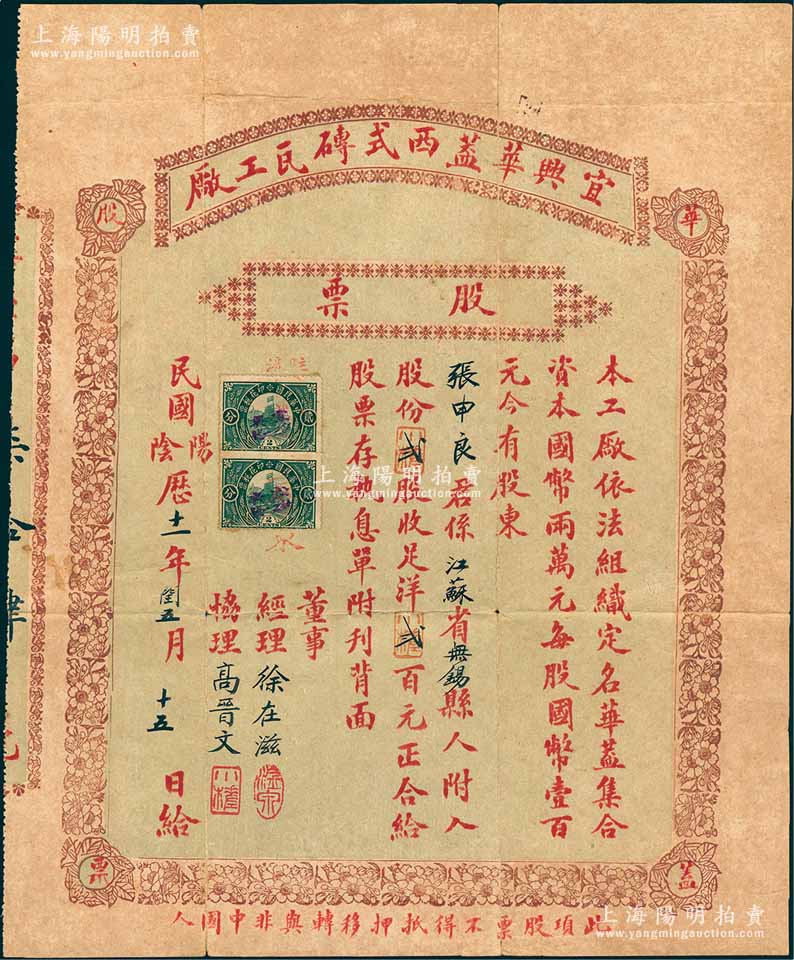 上海陽明拍賣
www.yangmingauction.com
宜興華蓋西式磚瓦工廠
華
股
股票
本工廠依法組織定名華蓋集合
資本國幣兩萬元每股國幣壹百
元今有股東
張申良君係江蘇省無錫縣人附入
股份弍股收足洋弍百元正合給
股票存執息單附刊背面
董事
經理徐在滋
協理高晉文
民國陰陽歷十一年閏五月十五日給
貳分
2
貳分
2
上海陽明拍賣
www.yangmingauction.com
蓋
票
此項股票不得抵押移轉與非中國人
上海陽明拍賣
www.yangmingauction.com